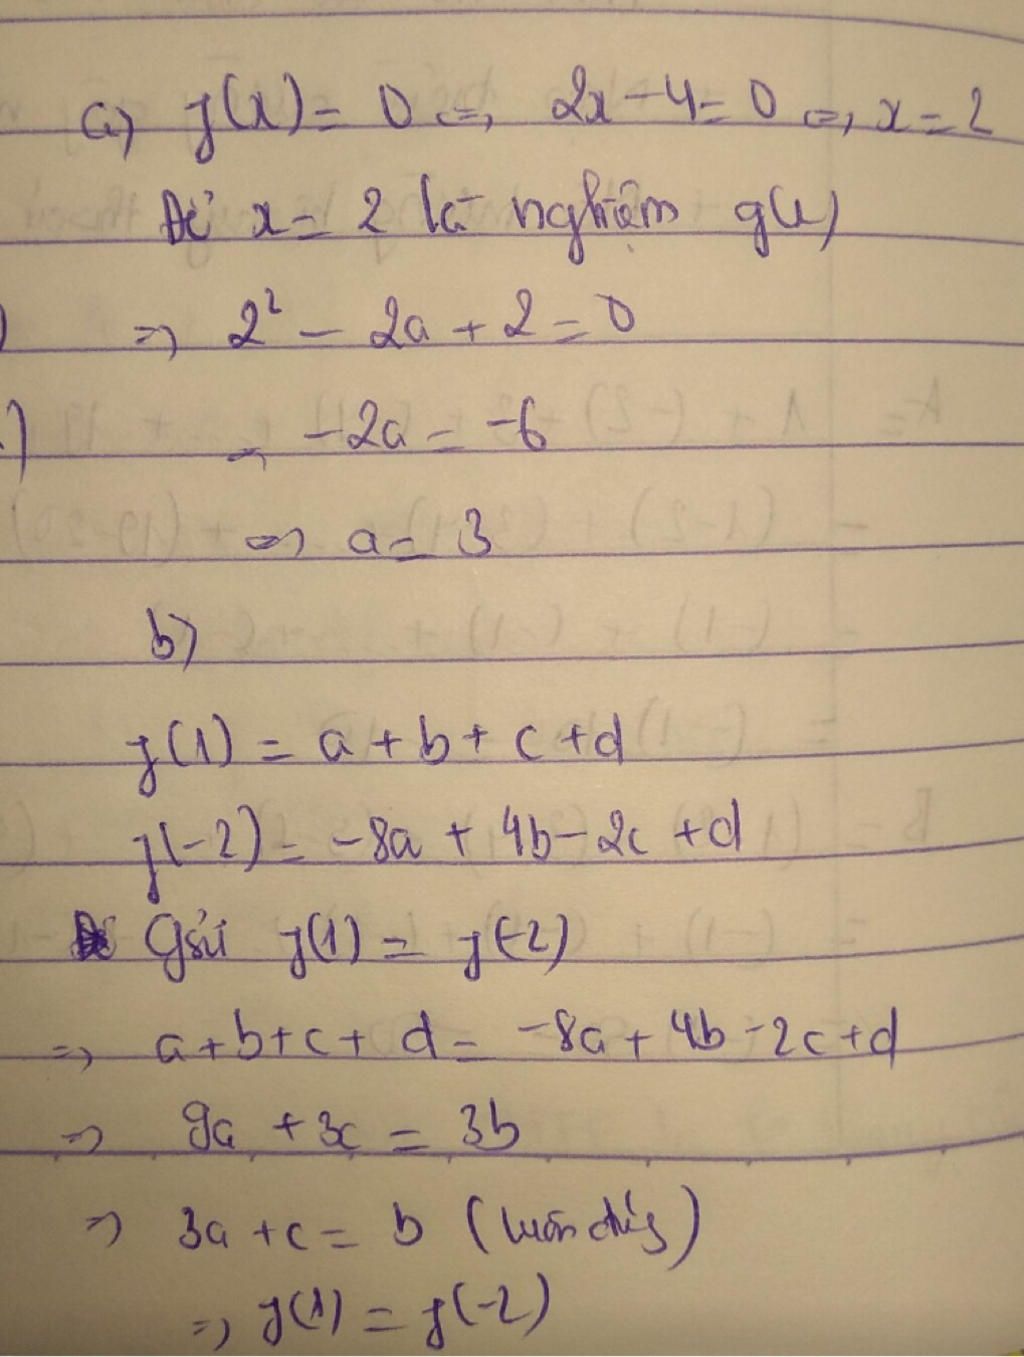 a) f(x) = 0 <=> 2x - 4 = 0 <=> x = 2
Để x = 2 là nghiệm g(x)
=> 2² - 2a + 2 = 0
=> -2a = -6
=> a = 3
b)
f(1) = a + b + c + d
f(-2) = -8a + 4b - 2c + d
Gsử f(1) = f(-2)
=> a + b + c + d = -8a + 4b - 2c + d
=> 9a + 3c = 3b
=> 3a + c = b (luôn đúng)
=> f(1) = f(-2)